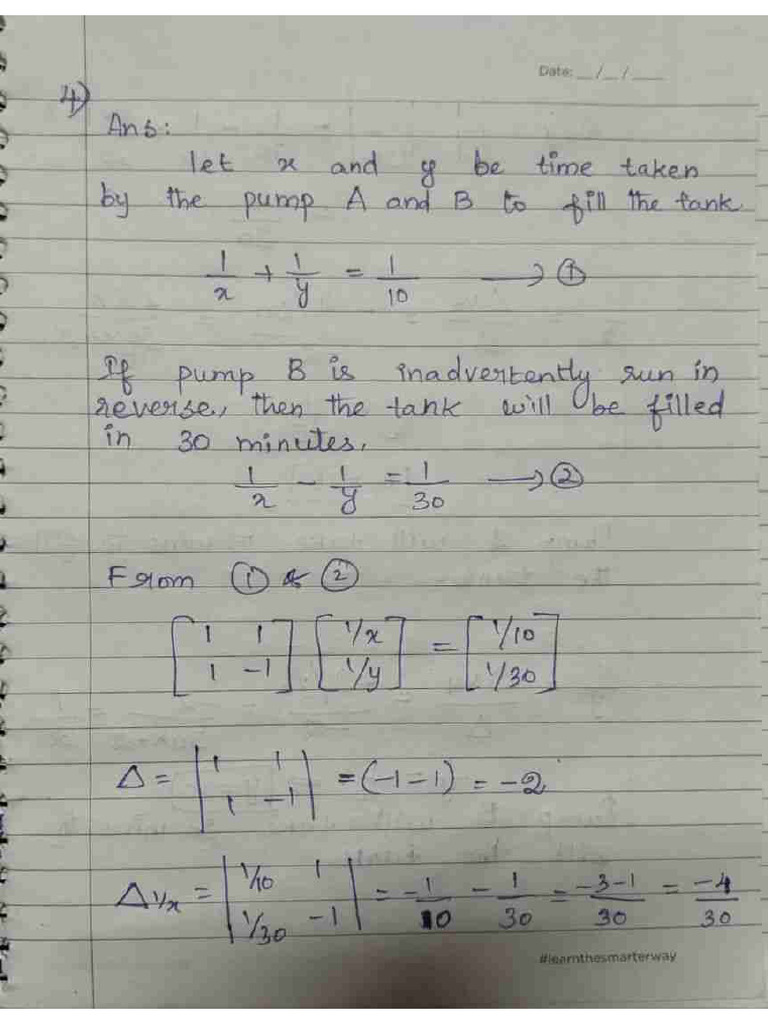 Date: __/__/____
4)
Ans:
let x and y be time taken
by the pump A and B to fill the tank
1/x + 1/y = 1/10 → ①
If pump B is inadvertently run in
reverse, then the tank will be filled
in 30 minutes,
1/x - 1/y = 1/30 → ②
From ① & ②
[1 1; 1 -1] [1/x; 1/y] = [1/10; 1/30]
Δ = |1 1; 1 -1| = (-1-1) = -2
Δ1/x = |1/10 1; 1/30 -1| = -1/10 - 1/30 = -3-1/30 = -4/30
#learnthesmarterway